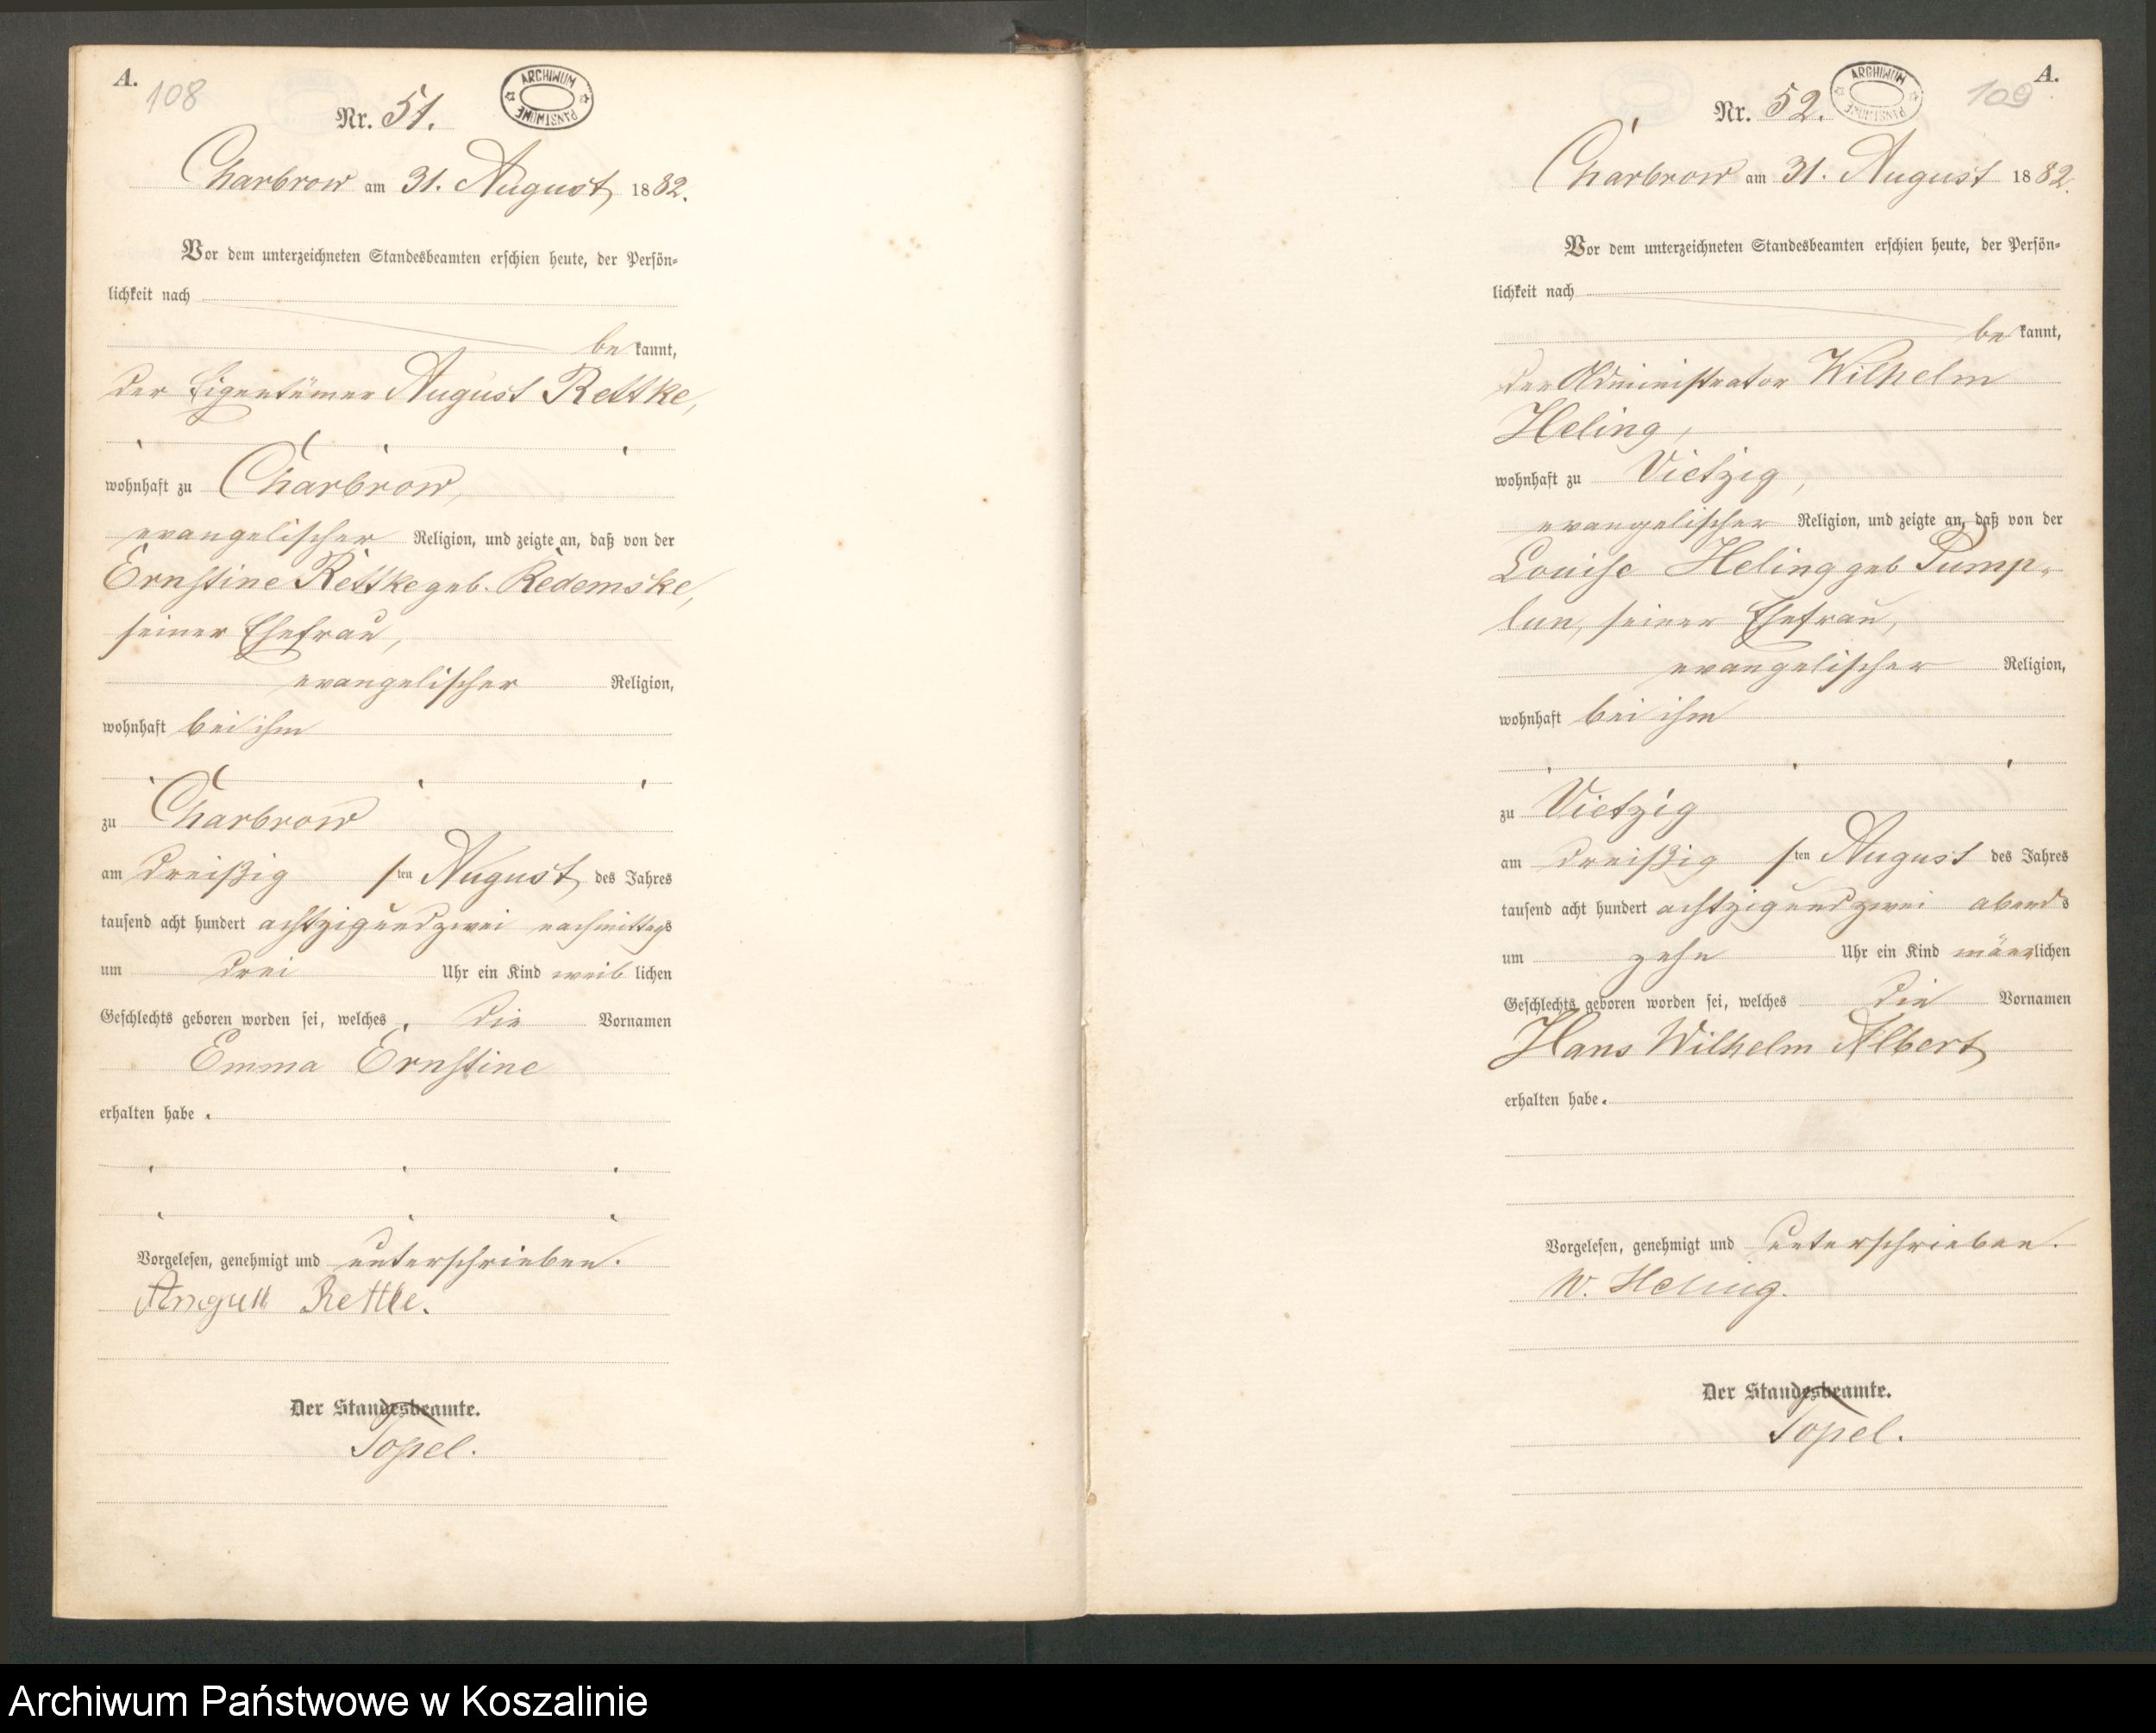 A.
108
Nr. 51.
ARCHIWUM PAŃSTWOWE
Charbrow am 31. August 1882.
Vor dem unterzeichneten Standesbeamten erschien heute, der Persön-
lichkeit nach
bekannt,
der Eigentümer August Rettke,
wohnhaft zu Charbrow,
evangelischer Religion, und zeigte an, daß von der
Ernstine Rettke geb. Redemske,
seiner Ehefrau,
evangelischer Religion,
wohnhaft bei ihm
zu Charbrow
am dreißigsten August des Jahres
tausend acht hundert achtzig und zwei nachmittags
um drei Uhr ein Kind weiblichen
Geschlechts geboren worden sei, welches die Vornamen
Emma Ernstine
erhalten habe.
Vorgelesen, genehmigt und unterschrieben.
August Rettke.
Der Standesbeamte.
Topel.
A.
109
Nr. 52.
ARCHIWUM PAŃSTWOWE
Charbrow am 31. August 1882.
Vor dem unterzeichneten Standesbeamten erschien heute, der Persön-
lichkeit nach
bekannt,
der Administrator Wilhelm
Heling,
wohnhaft zu Vietzig,
evangelischer Religion, und zeigte an, daß von der
Louise Heling geb Pump-
lun, seiner Ehefrau,
evangelischer Religion,
wohnhaft bei ihm
zu Vietzig
am dreißigsten August des Jahres
tausend acht hundert achtzig und zwei abends
um zehn Uhr ein Kind männlichen
Geschlechts geboren worden sei, welches die Vornamen
Hans Wilhelm Albert
erhalten habe.
Vorgelesen, genehmigt und unterschrieben.
W. Heling.
Der Standesbeamte.
Topel.
Archiwum Państwowe w Koszalinie